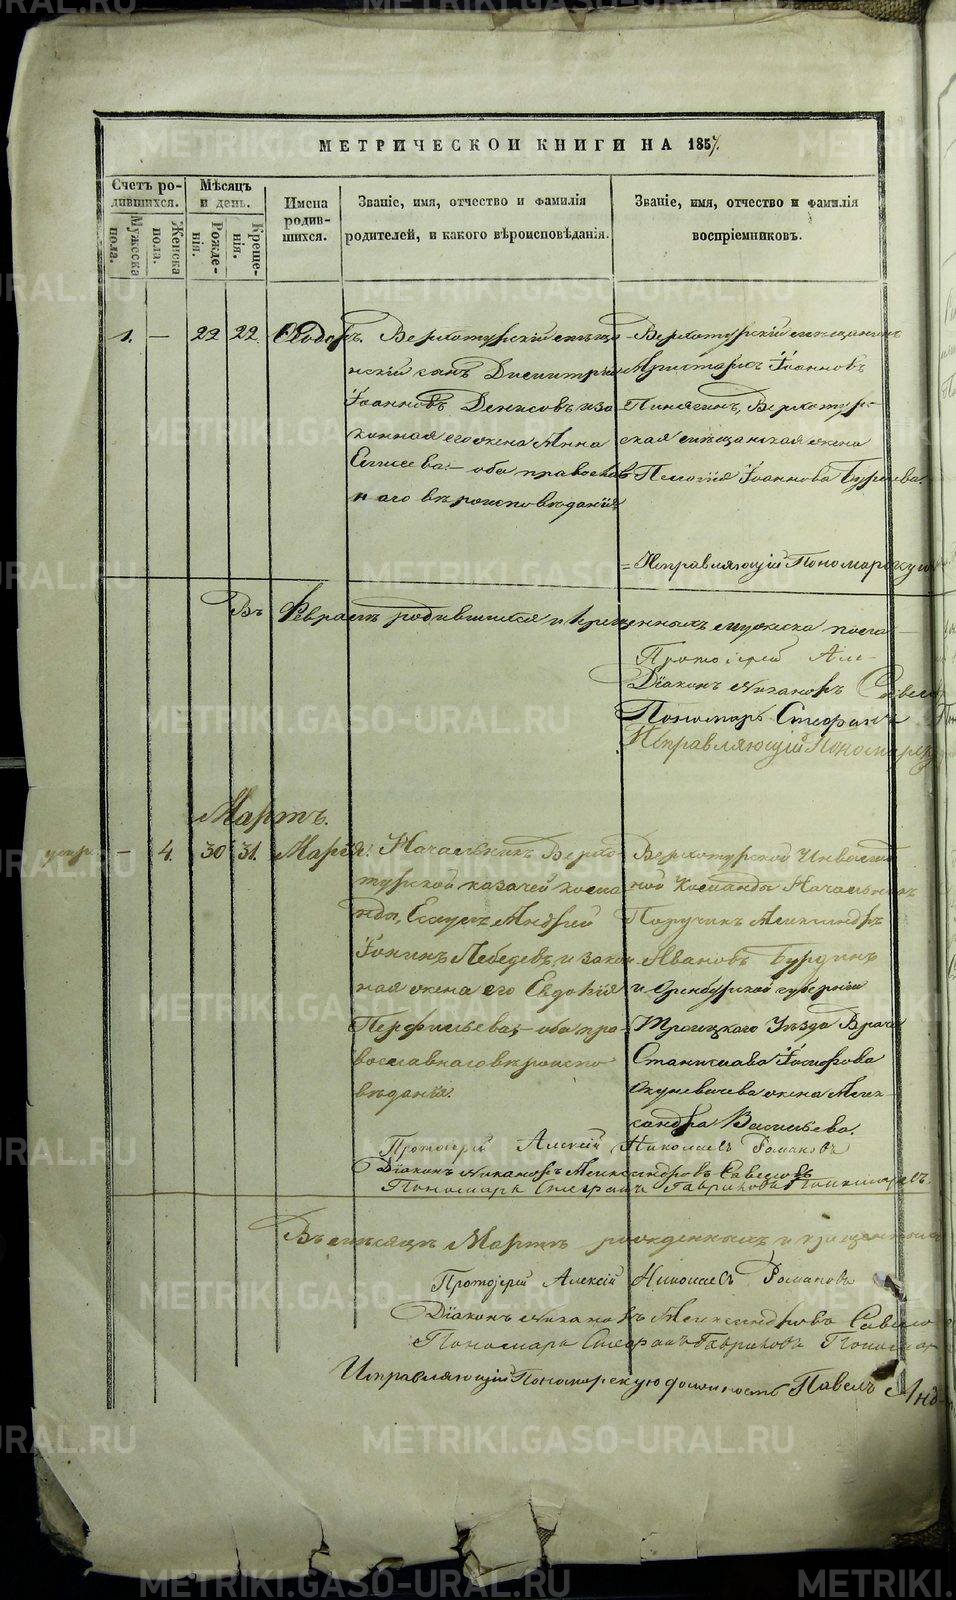 МЕТРИЧЕСКОЙ КНИГИ НА 1857.
Счетъ ро-
дившихся.
Мужеска
пола.
Женска
пола.
Мѣсяцъ
и день.
Рожде-
нія.
Креще-
нія.
Имена
родив-
шихся.
Званіе, имя, отчество и фамилія
родителей, и какого вѣроисповѣданія.
Званіе, имя, отчество и фамилія
воспріемниковъ.
1. — 22 22. Ѳеодоръ. Верхотурскій мѣща-
нскій сынъ Димитрій
Іоанновъ Денисовъ и за-
конная его жена Анна
Елисеева: — оба православ-
наго вѣроисповѣданія
Верхотурскій мѣщанинъ
Аристархъ Іоанновъ
Пинягинъ, Верхотур-
ская мѣщанская жена
Пелагія Іоаннова
Исправляющій Пономарску
Въ Февралѣ родившихся и крещенныхъ мужеска пола
Протоіерей Але-
Діаконъ Никаноръ
Пономарь Стефанъ
Исправляющій Пономарску
Мартъ.
— 4. 30 31. Марія. Начальникъ Верхо-
турской казачей кома-
нды, Есаулъ Андрей
Іонинъ Лебедевъ, и закон-
ная жена его Евдокія
Перфильева, — оба пра-
вославнаго вѣроиспо-
вѣданія.
Верхотурской Инвалид-
ной Команды Начальникъ
Поручикъ Александръ
Ивановъ Бурдинъ
и Оренбургской губерніи
Троицкаго Уѣзда Врача
Станислава Іосифова
жена Алек-
сандра Васильева.
Протоіерей Алексій Николаевъ Романовъ
Діаконъ Никаноръ Александровъ Савеловъ
Пономарь Стефанъ Гавриловъ
Въ мѣсяцѣ Мартѣ рожденныхъ и крещенныхъ
Протоіерей Алексій Николаевъ Романовъ
Діаконъ Никаноръ Александровъ Савело
Пономарь Стефанъ Гавриловъ
Исправляющій Пономарскую должность Павелъ Анд-
METRIKI.GASO-URAL.RU